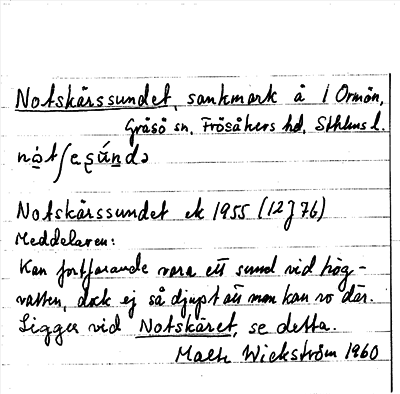 Notskärssundet, sankmark å / Ormön,
Gräsö sn, Frösåkers hd, Sthlms l.
nò̱tʃeʂúndə
Notskärssundet ek 1955 (12J76)
Meddelaren:
Kan fortfarande vara ett sund vid hög-
vatten, dock ej så djupt att man kan ro där.
Ligger vid Notskäret, se detta.
Malte Wickström 1960